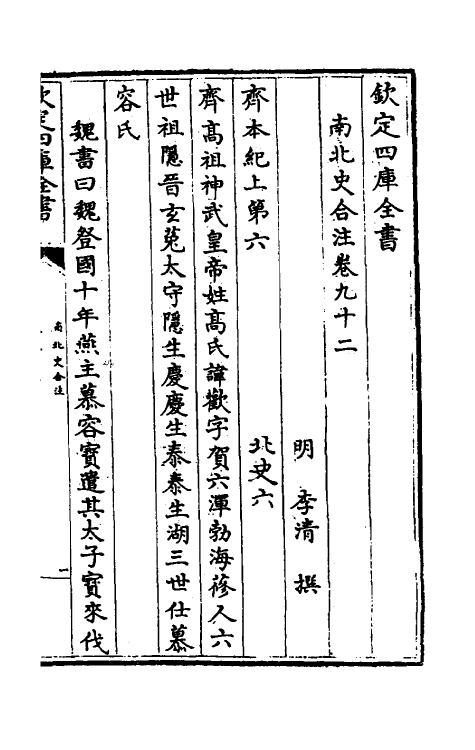 欽定四庫全書
南北史合注卷九十二
明 李清 撰
齊本紀上第六 北史六
齊髙祖神武皇帝姓髙氏諱歡字賀六渾勃海蓨人六
世祖隱晉玄菟太守隱生慶慶生泰泰生湖三世仕慕
容氏
魏書曰魏登國十年燕主慕容寳遣其太子寳來伐
欽定四庫全書
南北史合注
一